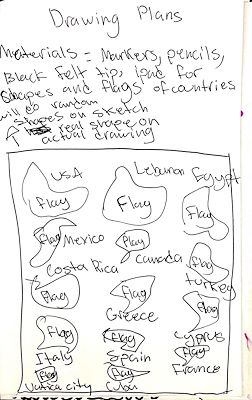 Drawing Plans
Materials = Markers, pencils,
Black felt tip, ipad for
shapes and flags of countries
will do random
shapes on sketch
real shape on
actual drawing
USA
Lebanon
Egypt
Flag
Flag
Flag
Flag
Mexico
Flag
Canada
Flag
Turkey
Costa Rica
Flag
Flag
Greece
Flag
Cyprus
Flag
Italy
Flag
Spain
Flag
France
Flag
Vatica city
Flag
Cuba